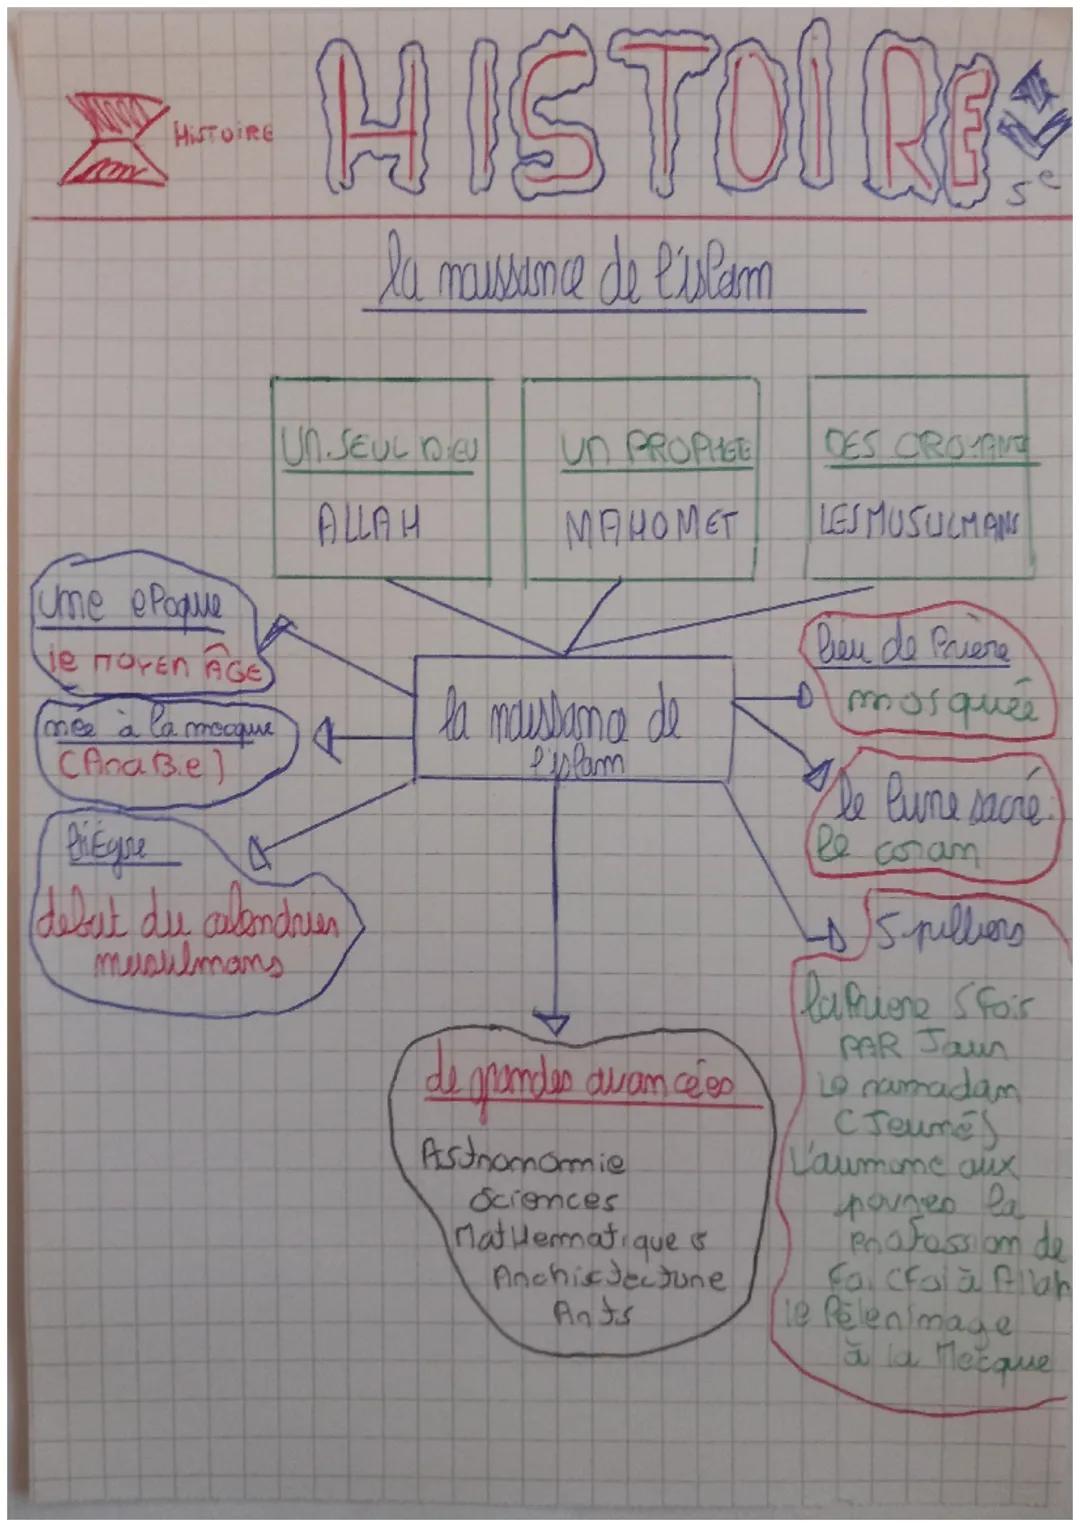 HISTOIRE
HISTOIRE
5e
la naissance de l'islam
UN SEUL DIEU
ALLAH
UN PROPHEE
MAHOMET
DES CROYANT
LES MUSULMANS
une epoque
le MOYEN ÂGE
nee à la mecque
(ArABie)
début du calendrier
musulmans
la naissance de
l'islam
lieu de Prière
mosquée
le livre sacré
le coran
5 pilliers
la Priere 5 fois
PAR Jour
Le ramadam
(Jeune)
L'aumone aux
pauvres la
profession de
foi (Foi à Allah
le Pélerimage
à la Mecque
de grandes avancées
Astronomie
Sciences
Mathematiques
Archistecture
Arts